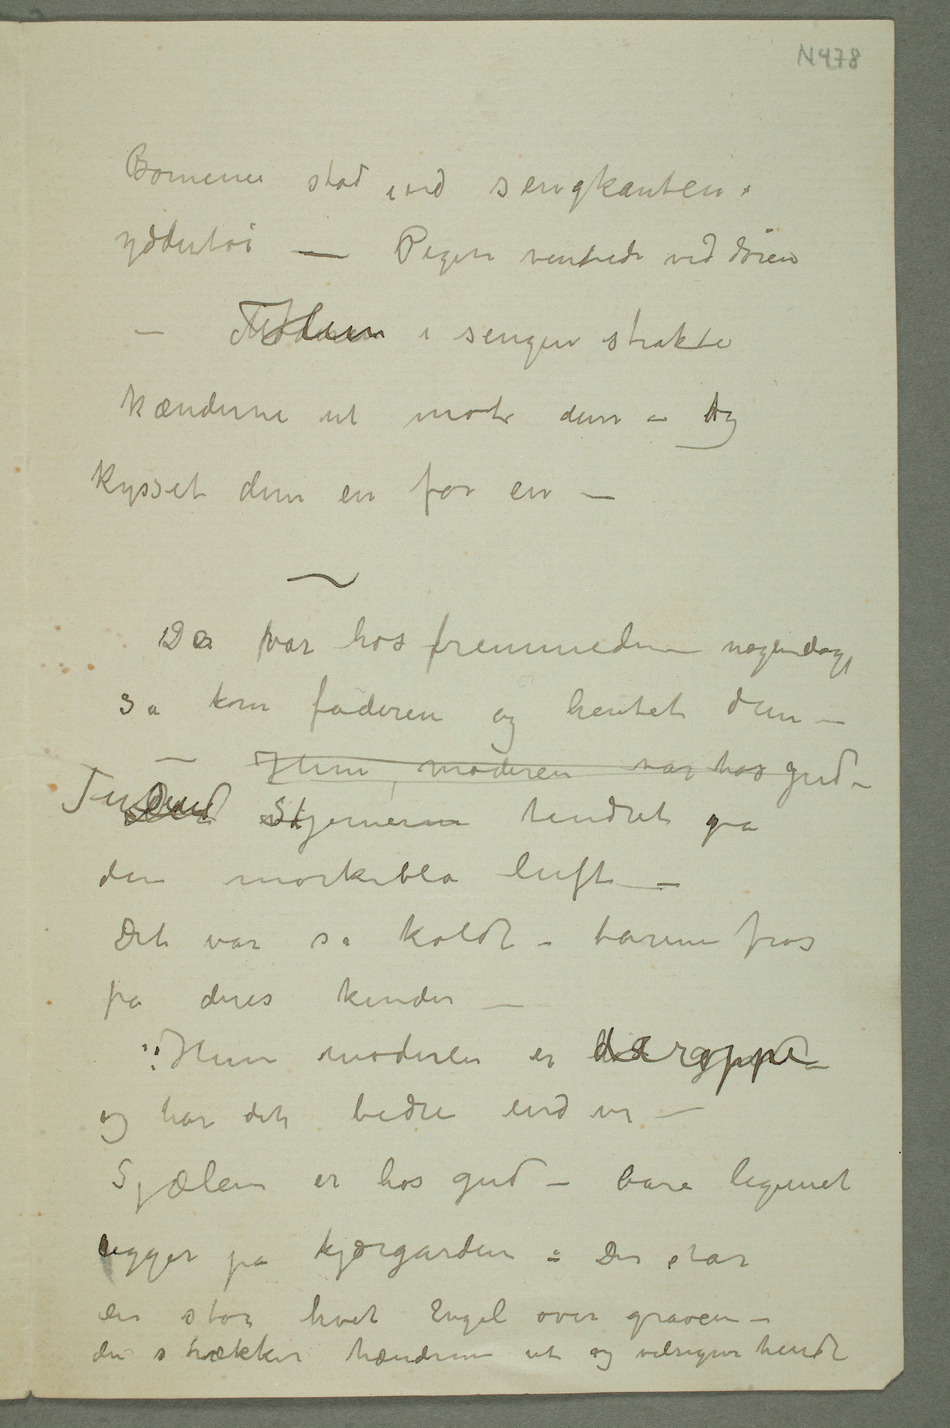 N478
Børnene stod ved sengkanten i
ydertøi — Pigen ventede ved døren
— i sengen strakte
hænderne ut mot dem – og
kysset dem en for en —
De var hos fremmede nogen dage
så kom faderen og hentet dem —
— Hun, moderen var hos gud –
Stjernerne tindret på
den mørkeblå luft —
Det var så koldt – tårerne frøs
på deres kinder —
Hun moderen er deroppe
og har det bedre end vi —
Sjælen er hos gud – bare legemet
ligger på kjærgården – Der står
en stor hvit Engel over graven –
den strækker hænderne ut og velsigner hende